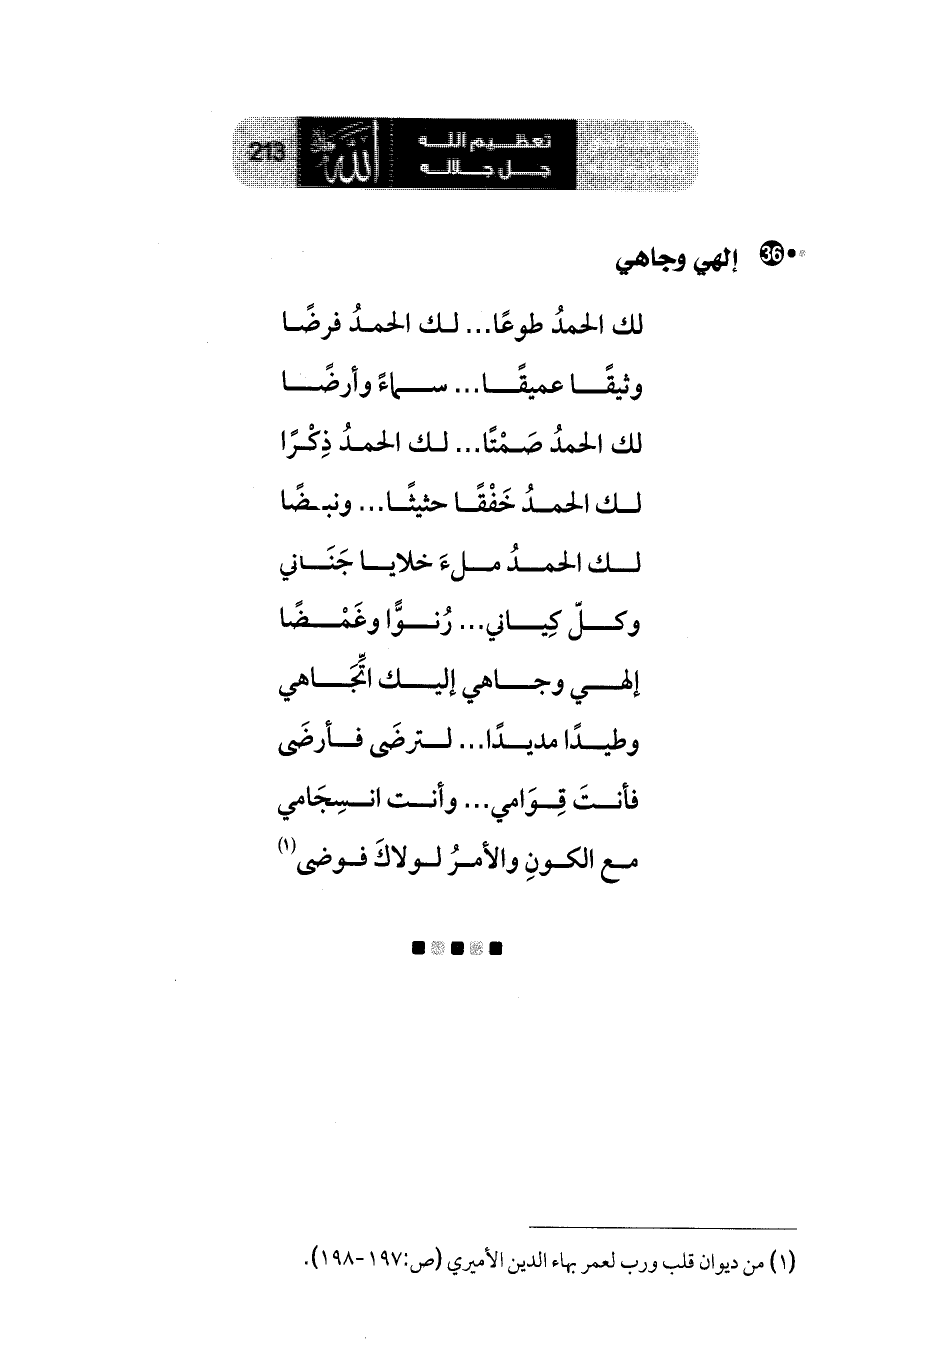 213
الله
تعظيم الله
جل جلاله
36 إلهي وجاهي
لك الحمدُ طوعًا... لك الحمدُ فرضًا
وثيقًا عميقًا... سماءً وأرضًا
لك الحمدُ صَمْتًا... لك الحمدُ ذِكْرًا
لك الحمدُ خَفْقًا حثيثًا... ونبضًا
لك الحمدُ ملءَ خلايا جَنَاني
وكلّ كِياني... رُنوًّا وغَمْضًا
إلهي وجاهي إليك اتِّجَاهي
وطيدًا مديدًا... لترضَى فأرضَى
فأنتَ قِوَامي... وأنت انسِجَامي
مع الكونِ والأمرُ لولاكَ فوضى(١)
(١) من ديوان قلب ورب لعمر بهاء الدين الأميري (ص:١٩٧-١٩٨).